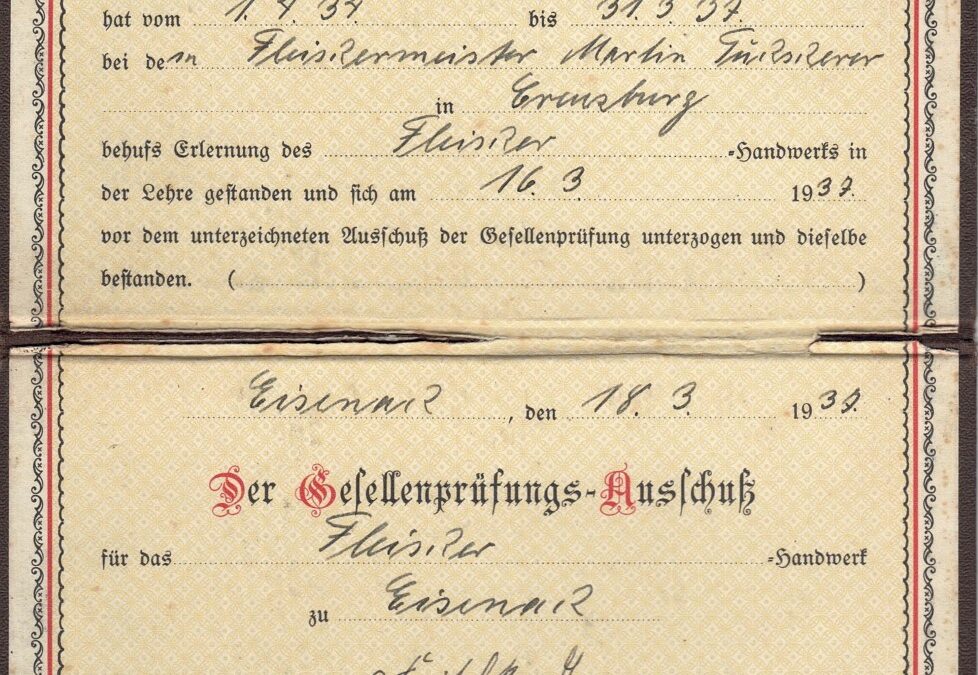 hat vom 1. 4. 34. bis 31. 3 37.
bei dem Fleischermeister Martin
in Creuzburg
behufs Erlernung des Fleischer -Handwerks in
der Lehre gestanden und sich am 16. 3 1937.
vor dem unterzeichneten Ausschuß der Gesellenprüfung unterzogen und dieselbe
bestanden. ( )
Eisenach, den 18. 3. 1937.
Der Gesellenprüfungs-Ausschuß
für das Fleischer -Handwerk
zu Eisenach